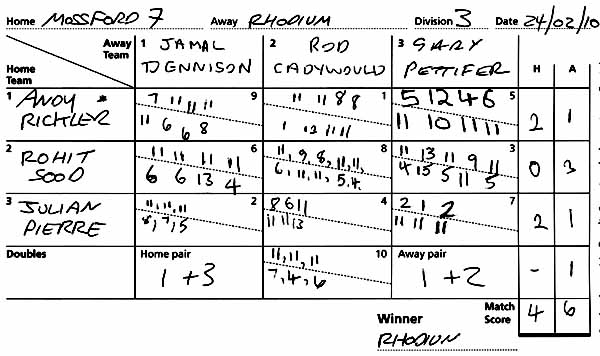 Home MOSSFORD 7 Away RHODIUM Division 3 Date 24/02/10
Away Team
Home Team
1 JAMAL DENNISON
2 ROD CADYWOULD
3 GARY PETTIFER
H A
1 ANDY * RICHLER
7 11 11 11 9
11 6 6 8
11 11 8 8 1
1 12 11 11
5 12 4 6 5
11 10 11 11
2 1
2 ROHIT SOOD
11 11 11 11 6
6 6 13 4
11, 9, 8, 11, 11, 8
6, 11, 11, 5, 4,
11 13 11 9 11 3
4 15 5 11 5
0 3
3 JULIAN PIERRE
11, 11, 11 2
8, 7, 5
8 6 11 4
11 11 13
2 1 2 7
11 11 11
2 1
Doubles
Home pair
1 + 3
11, 11, 11 10
7, 4, 6
Away pair
1 + 2
- 1
Winner
RHODIUM
Match Score
4 6